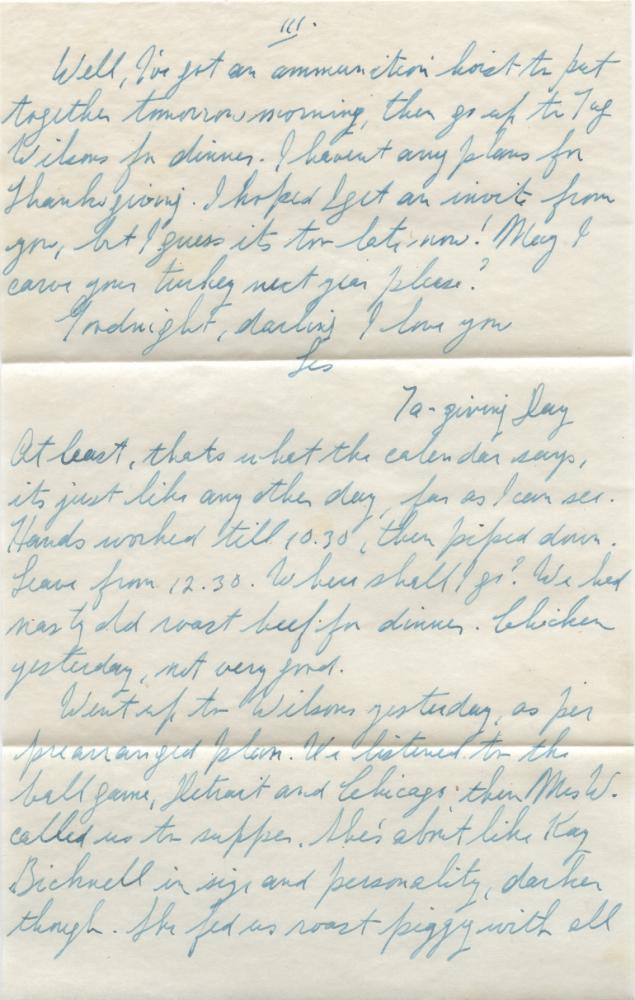 III.
Well, I've got an ammunition hoist to put
together tomorrow morning, then go up to Tug
Wilsons for dinner. I havent any plans for
Thanksgiving. I hoped I get an invite from
you, but I guess its too late now! May I
carve your turkey next year please?
Goodnight, darling I love you
Les
Ta-giving Day
At least, thats what the calendar says,
its just like any other day, far as I can see.
Hands worked till 10.30, then piped down.
Leave from 12.30. Where shall I go? We had
nasty old roast beef for dinner. Chicken
yesterday, not very good.
Went up to Wilsons yesterday, as per
prearranged plan. We listened to the
ball game, Detroit and Chicago, then Mrs W.
called us to supper. She's about like Kay
Bicknell in size and personality, darker
though. She fed us roast piggy with all